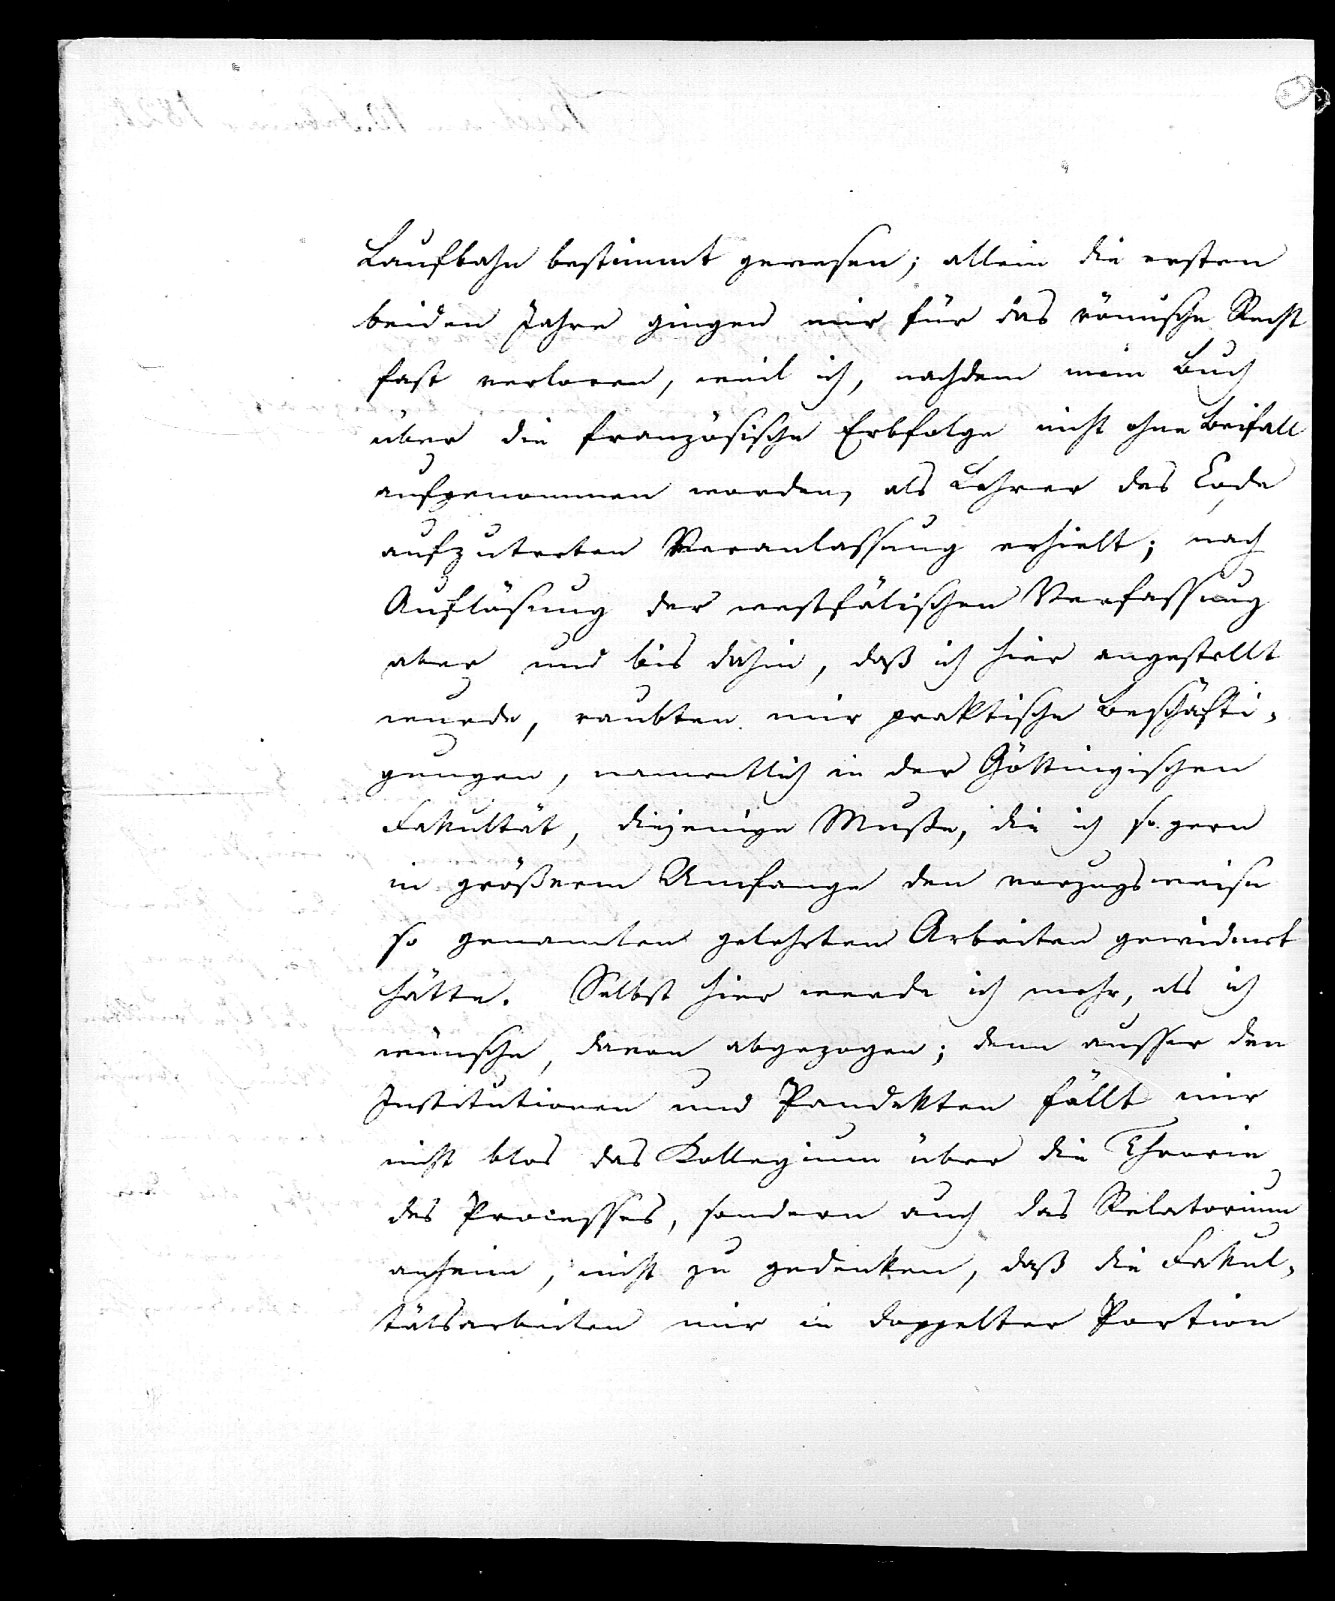 Laufbahn bestimmt gewesen; allein die ersten
beiden Jahre gingen mir für das römische Recht
fast verloren, weil ich, nachdem mein Buch
über die französische Erbfolge nicht ohne Beifall
aufgenommen worden, als Lehrer des Code
aufzutreten Veranlassung erhielt; nach
Auflösung der westfälischen Verfassung
aber und bis dahin, daß ich hier angestellt
wurde, raubten mir praktische Beschäfti-
gungen, namentlich in der Göttingischen
Fakultät, diejenige Muße, die ich so gern
in größerm Umfange den vorzugsweise
so genannten gelehrten Arbeiten gewidmet
hätte. Selbst hier werde ich mehr, als ich
wünsche, davon abgezogen; denn ausser den
Institutionen und Pandekten fällt mir
nicht blos das Kollegium über die Theorie
des Processes, sondern auch das Relatorium
anheim, nicht zu gedenken, daß die Fakul-
tätsarbeiten mir in doppelter Portion